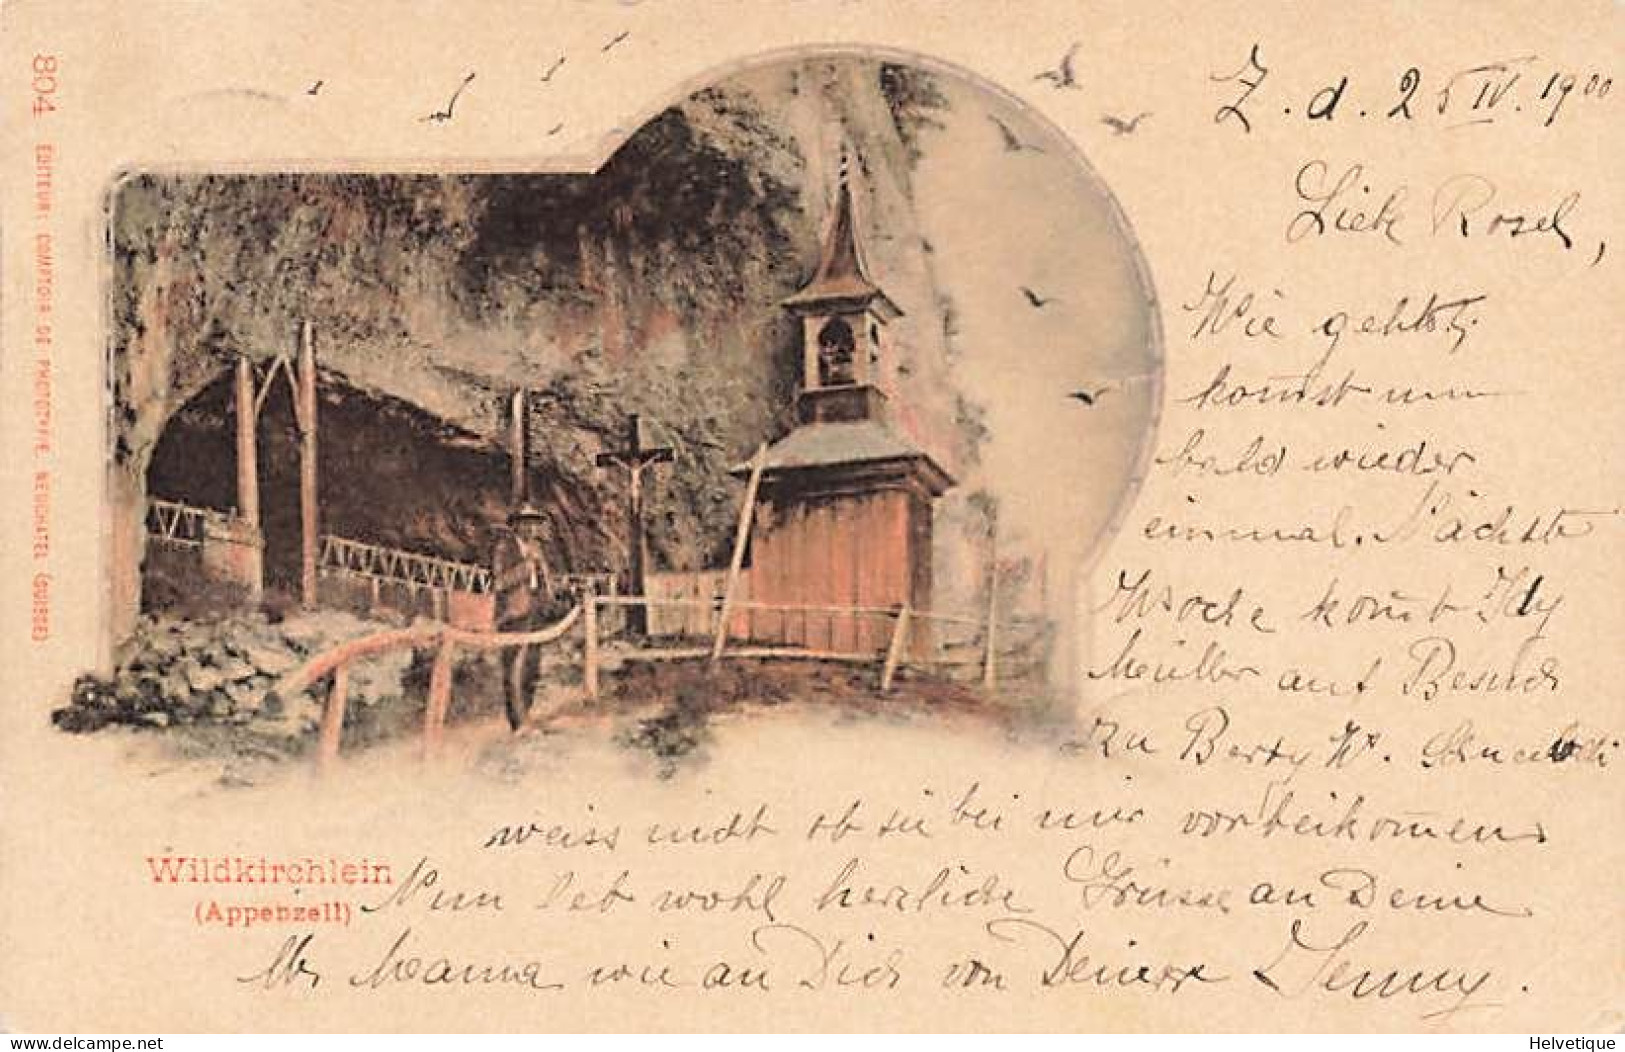 804 EDITEUR: COMPTOIR DE PHOTOTYPIE, NEUCHATEL (SUISSE)
Z. d. 25 IV. 1900
Liebe Rosel,
Wie gehts
komst nun
bald wieder
einmal. Nächste
Woche komt Idy
Müller auf Besuch
zu Berty W.
weiss nicht ob sie bei mir vorbeikommen.
Nun leb wohl herzliche Grüsse an Deine
lb. Mamma wie an Dich von Deiner Jenny.
Wildkirchlein
(Appenzell)
delcampe.net
Helvetique